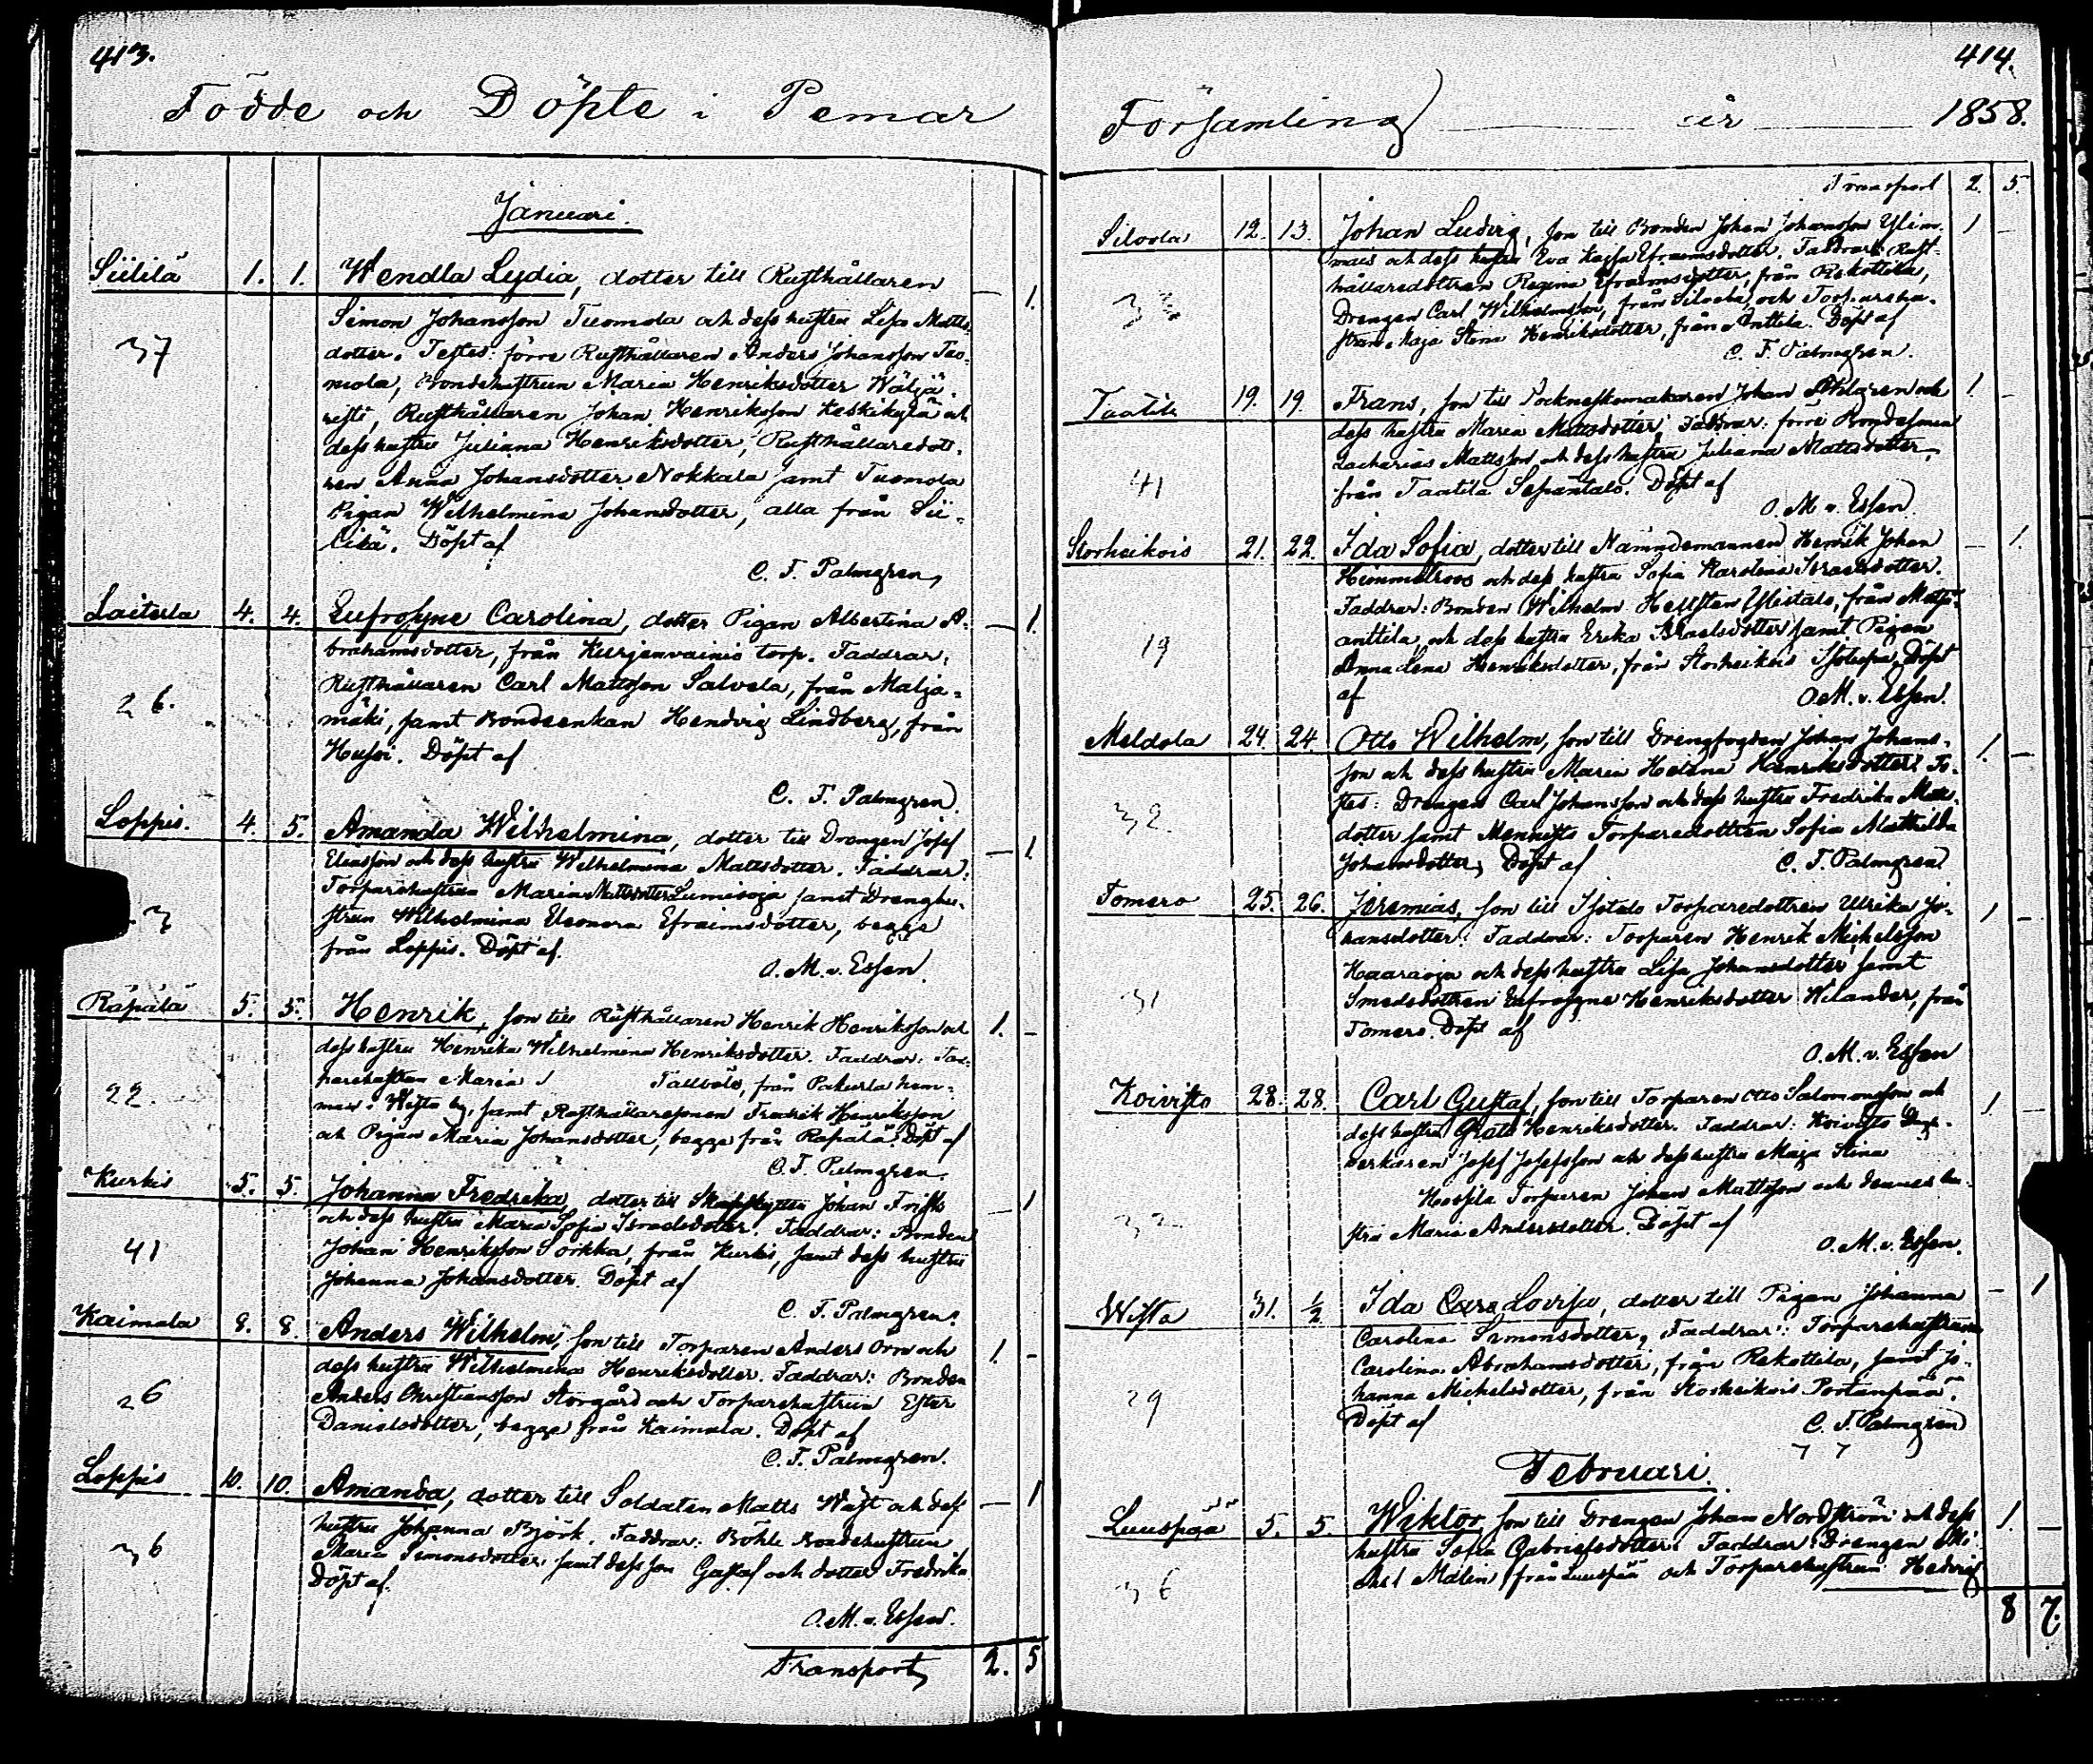 413.
Födde och Döpte i Pemar
Januari.
Siililä 1. 1. Wendla Lydia, dotter till Rusthållaren — 1.
Simon Johansson Tuomola och dess hustru Lisa Matts
dotter. Testes: förre Rusthållaren Anders Johansson Tuo=
mola, Bondehustrun Maria Henriksdotter Wäljä
risti, Rusthållaren Johan Henriksson Keskikylä och
dess hustru Juliana Henriksdotter, Rusthållaredott.
ren Anna Johansdotter Nokkala samt Tuomola
Pigan Wilhelmina Johansdotter, alla från Sii=
lilä. Döpt af
37
C. F. Palmgren,
Laiterla 4. 4. Eufrosyne Carolina, dotter Pigan Albertina A= — 1.
brahamsdotter, från Kurjenvainio torp. Faddrar:
Rusthållaren Carl Mattsson Salvela, från Malja=
mäki, samt Bondeenkan Hendvig Lindberg, från
26.
Husoi. Döpt af
C. F. Palmgren.
Loppis. 4. 5. Amanda Wilhelmina, dotter till Drengen Josef — 1.
Eliasson och dess hustru Wilhelmina Mattsdotter. Faddrar:
Torparehustrun Maria Mattsdotter Lumisoja samt Drenghu=
strun Wilhelmina Eleonora Efraimsdotter, begge
från Loppis. Döpt af.
O. M. v. Essen.
Räpälä 5. 5. Henrik, son till Rusthållaren Henrik Henriksson och 1. —
dess hustru Henrika Wilhelmina Henriksdotter. Faddrar: Tor=
parehustrun Maria Tallbole, från Pakurla hem=
man. Wista by, samt Rusthållaresonen Fredrik Henriksson
och Pigan Maria Johansdotter, begge från Räpälä. Döpt af
22.
C. F. Palmgren.
Kurkis 5. 5. Johanna Fredrika, dotter till Johan Frisk — 1
och dess hustru Maria Sofia Israelsdotter. Faddrar: Bonden
Johan Henriksson Sorkka, från Kurkis, samt dess hustru
Johanna Johansdotter. Döpt af
41
C. F. Palmgren.
Kaimala 8. 8. Anders Wilhelm, son till Torparen Anders Orn och 1. —
dess hustru Wilhelmina Henriksdotter. Faddrar: Bonden
Anders Christiansson Storgård och Torparehustrun Ester
Danielsdotter, begge från Kaimala. Döpt af
26
C. F. Palmgren.
Loppis 10. 10. Amanda, dotter till Soldaten Matts Wäst och dess — 1
hustru Johanna Björk. Faddrar: Böhle Bondehustrun
Maria Simonsdotter samt dess son Gustaf och dotter Fredrika
Döpt af.
36
O. M. v. Essen.
Transport, 2. 5
414.
Församling år 1858.
Transport 2. 5.
12. 13. Johan Ludvig, son till Bonden Johan Johansson Ylim 1 —
mäis och dess hustru Eva Kajsa Efraimsdotter. Faddrar: Rust=
hållaredottren Regina Efraimsdotter, från Rekottila,
Drengen Carl Wilhelmsson, från och Torparehu=
strun Maja Stina Henriksdotter, från Anttila. Döpt af
C. F. Palmgren.
Taatila 19. 19. Frans, son till Sockneskomakaren Johan Ahlgren och 1. —
dess hustru Maria Mattsdotter. Faddrar: förre Bondesonen
Zacharias Mattsson och dess hustru Juliana Mattsdotter,
från Taatila Sepäntalo. Döpt af
41
O. M. v. Essen.
Storheikois 21. 22. Ida Sofia, dotter till Nämndemannen Henrik Johan — 1.
Himmelroos och dess hustru Sofia Karolina Israelsdotter.
Faddrar: Bonden Wilhelm Hellsten Ylistalo, från
anttila och dess hustru Erika Israelsdotter samt Pigan
Anna Lena Henriksdotter, från Storheikois Isotupa. Döpt
19
af O. M. v. Essen.
Meldola 24. 24. Otto Wilhelm, son till Drengfogden Johan Johans= 1. —
son och dess hustru Maria Helena Henriksdotter. Te=
stes: Drengen Carl Johansson och dess hustru Fredrika Matts=
dotter samt Torparedottren Sofia Mathilda
Johansdotter, Döpt af C. F. Palmgren.
32.
Tomero 25. 26. Jeremias, son till Isotalo Torparedottren Ulrika Jo= 1 —
hansdotter. Faddrar: Torparen Henrik Michelsson
Haaraoja och dess hustru Lisa Johansdotter samt
Smedsdottren Eufrosyne Henriksdotter Wilander, från
Tomero. Döpt af
31
O. M. v. Essen
Koivisto 28. 28. Carl Gustaf, son till Torparen Otto Salomonsson och 1 —
dess hustru Greta Henriksdotter. Faddrar: Koivisto Dags=
verkaren Josef Josefsson och dess hustru Maja Stina
Torparen Johan Mattsson och dennes hu=
stru Maria Andersdotter. Döpt af
O. M. v. Essen.
Wista 31. 1/2 Ida Lovisa, dotter till Pigan Johanna — 1
Carolina Simonsdotter, Faddrar: Torparehustrun
Carolina Abrahamsdotter, från Rekottila, samt Jo=
hanna Michelsdotter, från Storheikois Portanpää.
29
Döpt af C. F. Palmgren
Februari.
Luuspää 5. 5. Wiktor, son till Drengen Johan Nordström och dess 1. —
hustru Sofia Gabrielsdotter. Faddrar: Drengen Mi
chel Malin från Luuspää och Torparehustrun Hedvig
36
8 7.